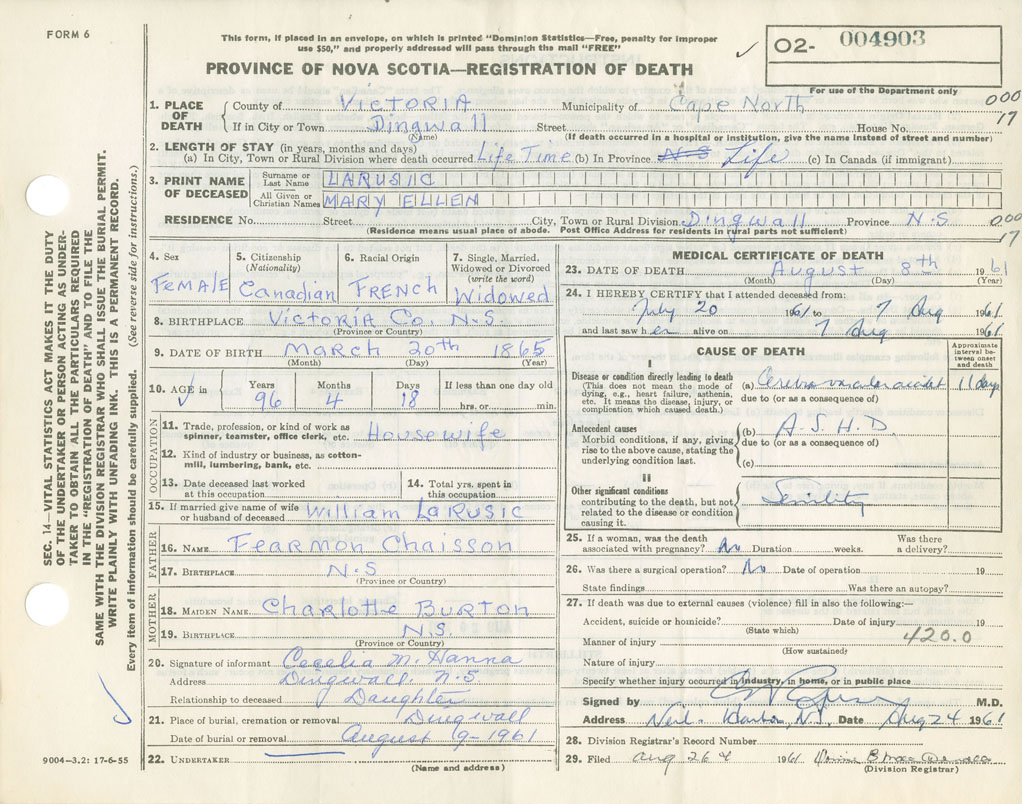 FORM 6
This form, if placed in an envelope, on which is printed "Dominion Statistics—Free, penalty for improper
use $50," and properly addressed will pass through the mail "FREE"
O2- 004903
For use of the Department only
PROVINCE OF NOVA SCOTIA—REGISTRATION OF DEATH
SEC. 14—VITAL STATISTICS ACT MAKES IT THE DUTY
OF THE UNDERTAKER OR PERSON ACTING AS UNDER-
TAKER TO OBTAIN ALL THE PARTICULARS REQUIRED
IN THE "REGISTRATION OF DEATH" AND TO FILE THE
SAME WITH THE DIVISION REGISTRAR WHO SHALL ISSUE THE BURIAL PERMIT.
WRITE PLAINLY WITH UNFADING INK. THIS IS A PERMANENT RECORD.
Every item of information should be carefully supplied. (See reverse side for instructions.)
1. PLACE OF DEATH
County of Victoria Municipality of Cape North 000
If in City or Town Dingwall Street House No. 17
(Name) (If death occurred in a hospital or institution, give the name instead of street and number)
2. LENGTH OF STAY (in years, months and days)
(a) In City, Town or Rural Division where death occurred Life Time (b) In Province N S Life (c) In Canada (if immigrant)
3. PRINT NAME OF DECEASED
Surname or Last Name LARUSIC
All Given or Christian Names MARY ELLEN
RESIDENCE No. Street City, Town or Rural Division Dingwall Province N.S 000
(Residence means usual place of abode. Post Office Address for residents in rural parts not sufficient) 17
4. Sex FEMALE
5. Citizenship (Nationality) Canadian
6. Racial Origin FRENCH
7. Single, Married, Widowed or Divorced (write the word) Widowed
8. BIRTHPLACE Victoria Co. N.S.
(Province or Country)
9. DATE OF BIRTH March 20th 1865
(Month) (Day) (Year)
10. AGE in Years 96 Months 4 Days 18 If less than one day old hrs. or min.
OCCUPATION
11. Trade, profession, or kind of work as
spinner, teamster, office clerk, etc. Housewife
12. Kind of industry or business, as cotton-
mill, lumbering, bank, etc.
13. Date deceased last worked at this occupation
14. Total yrs. spent in this occupation
15. If married give name of wife
or husband of deceased William LaRusic
FATHER
16. NAME Fearmon Chaisson
17. BIRTHPLACE N.S
(Province or Country)
MOTHER
18. MAIDEN NAME Charlotte Burton
19. BIRTHPLACE N.S.
(Province or Country)
20. Signature of informant Cecelia M. Hanna
Address Dingwall N.S
Relationship to deceased Daughter
21. Place of burial, cremation or removal Dingwall
Date of burial or removal August 9-1961
22. UNDERTAKER
(Name and address)
9004—3.2: 17-6-55
MEDICAL CERTIFICATE OF DEATH
23. DATE OF DEATH August 8th 1961
(Month) (Day) (Year)
24. I HEREBY CERTIFY that I attended deceased from:
July 20 1961 to 7 Aug 1961
and last saw her alive on 7 Aug 1961
CAUSE OF DEATH
Approximate interval be-tween onset and death
I
Disease or condition directly leading to death
(This does not mean the mode of
dying, e.g., heart failure, asthenia,
etc. It means the disease, injury, or
complication which caused death.)
(a) Cerebrovascular accident 11 days
due to (or as a consequence of)
Antecedent causes
Morbid conditions, if any, giving
rise to the above cause, stating the
underlying condition last.
(b) A.S.H.D.
due to (or as a consequence of)
(c)
II
Other significant conditions
contributing to the death, but not
related to the disease or condition
causing it.
Senility
25. If a woman, was the death Was there
associated with pregnancy? No Duration weeks. a delivery?
26. Was there a surgical operation? No Date of operation 19
State findings Was there an autopsy?
27. If death was due to external causes (violence) fill in also the following:—
Accident, suicide or homicide? Date of injury 19
(State which)
Manner of injury 420.0
(How sustained)
Nature of injury
Specify whether injury occurred in industry, in home, or in public place
Signed by M.D.
Address Neil's Harbour, N.S. Date Aug 24 1961
28. Division Registrar's Record Number
29. Filed Aug 26 1961
(Division Registrar)